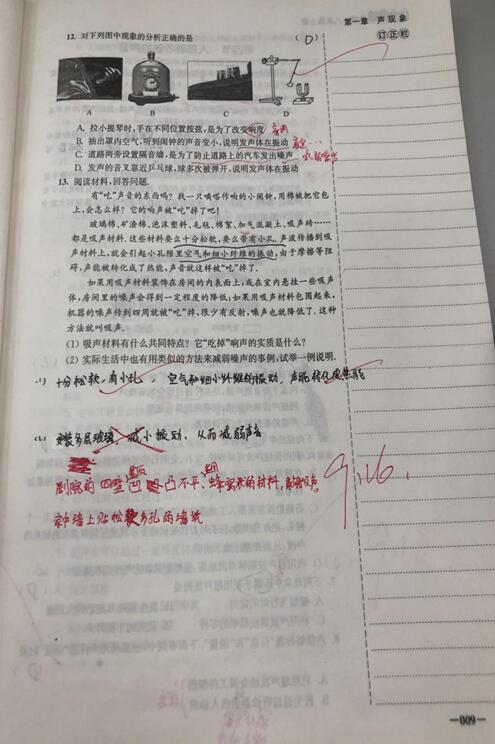 第一章 声现象
订正栏
12. 对下列图中现象的分析正确的是 ( D )
A B C D
A. 拉小提琴时,手在不同位置按弦,是为了改变响度 音调
B. 抽出罩内空气,听到闹钟的声音变小,说明发声体在振动
C. 道路两旁设置隔音墙,是为了防止道路上的汽车发出噪声
D. 发声的音叉靠近乒乓球,球多次被弹开,说明发声体在振动
13. 阅读材料,回答问题.
有“吃”声音的东西吗?我一只嘀嗒作响的小闹钟,用棉被把它包
上,会怎么样?它的响声被“吃”掉了吧!
玻璃棉、矿渣棉、泡沫塑料、毛毡、棉絮、加气混凝土、吸声砖……
都是吸声材料.这些材料要么十分松软,要么带有小孔.声波传播到吸
声材料上,就会引起小孔隙里空气和细小纤维的振动,由于摩擦等阻
碍,声能被转化成了热能,声音就这样被“吃”掉了.
如果用吸声材料装饰在房间的内表面上,或在室内悬挂一些吸声
体,房间里的噪声会得到一定程度的降低;如果用吸声材料包围起来,
机器的噪声传到四周就被“吃”掉,很少有反射,噪声也就降低了.这种
方法就叫吸声.
(1) 吸声材料有什么共同特点?它“吃掉”响声的实质是什么?
(2) 实际生活中也有用类似的方法来减弱噪声的事例,试举一例说明.
(1) 十分松软,有小孔, 空气和细小纤维的振动,声能转化成热能
(2) 安装多层玻璃,减小振动,从而减弱声音
剧院的四壁凹凸不平,蜂窝状的材料,
墙上贴松软多孔的墙纸
9.16.
—009—